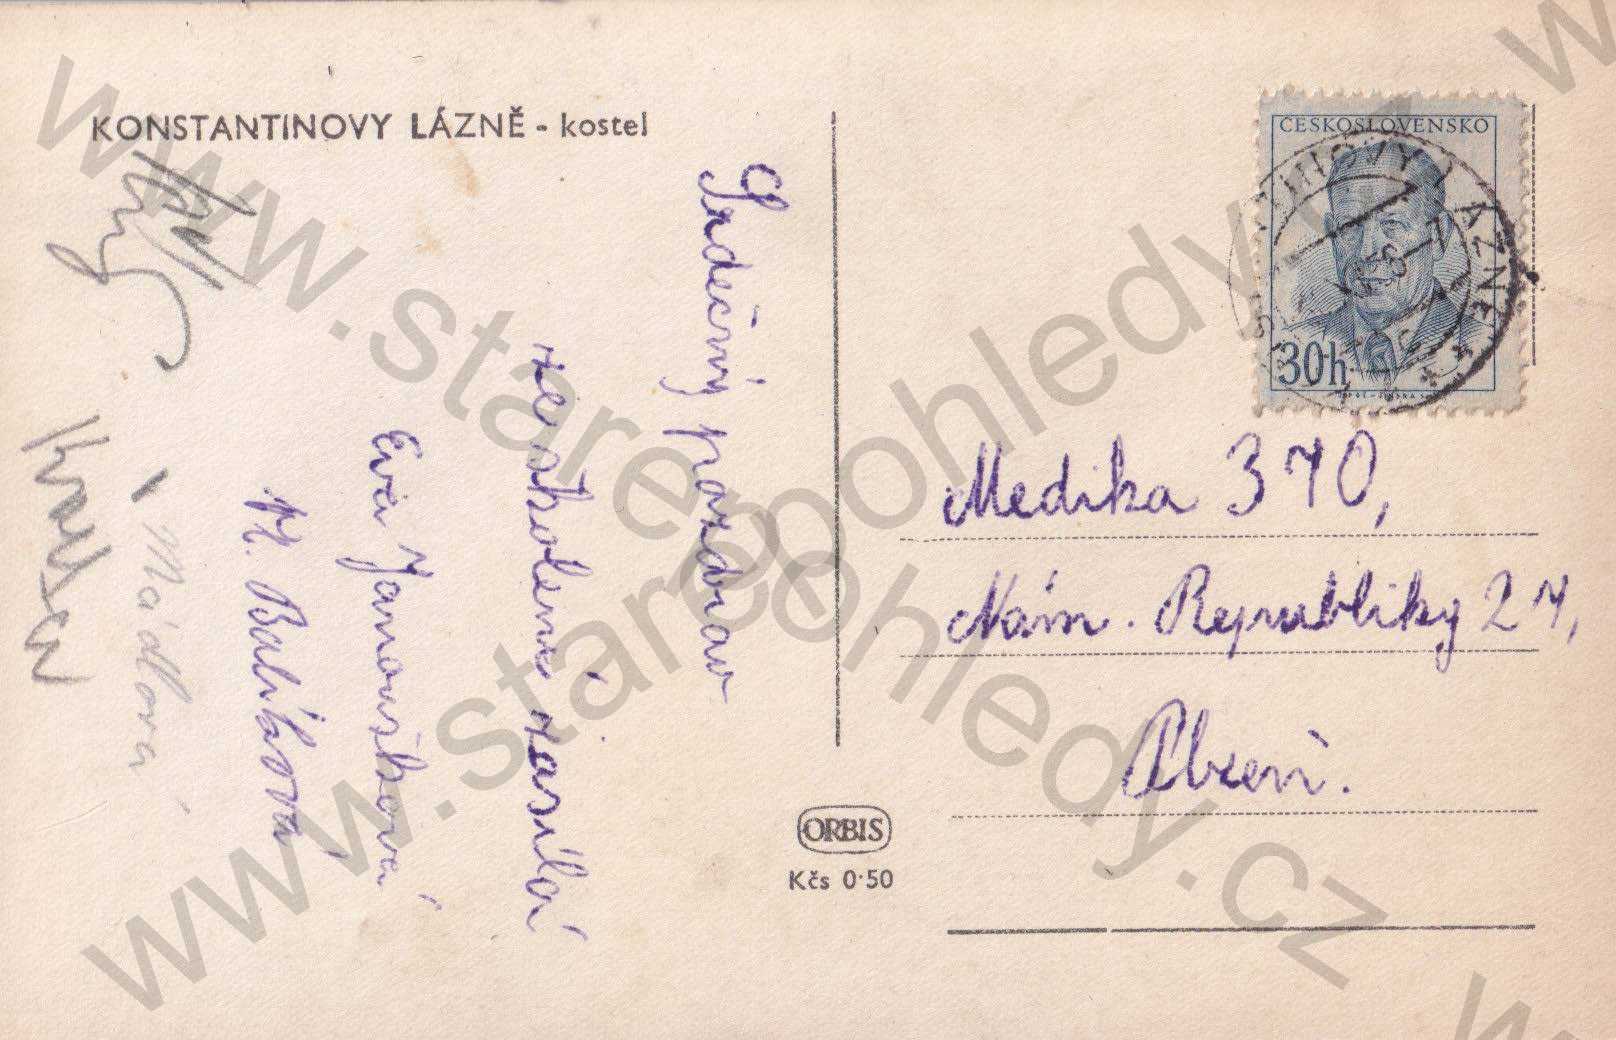 KONSTANTINOVY LÁZNĚ - kostel
Srdečný pozdrav
ze školení zasílá
Eva Janoušková
M. Balíková
Mádlová
ČESKOSLOVENSKO
30h
Medika 370,
Nám. Republiky 27,
Plzeň.
ORBIS
Kčs 0·50
www.starepohledy.cz
www.starepohledy.cz